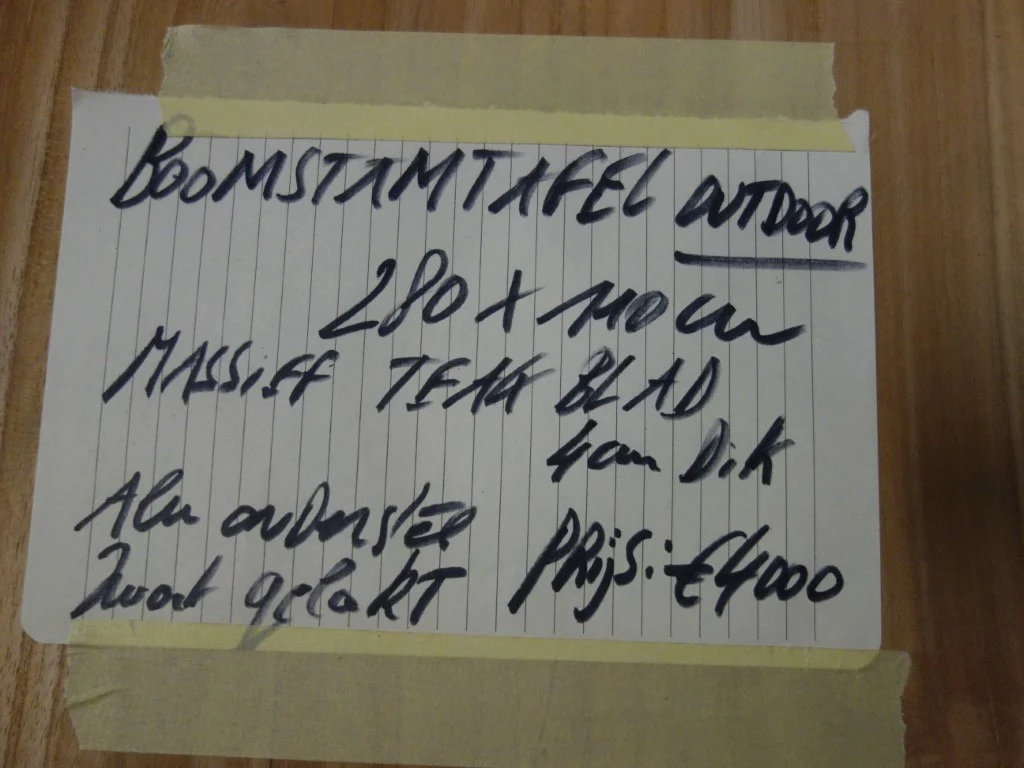 BOOMSTAMTAFEL OUTDOOR
280 X 110 cm
MASSIEF TEAK BLAD
4cm Dik
Alu onderstel
Zwart gelakt
PRijs: €4000